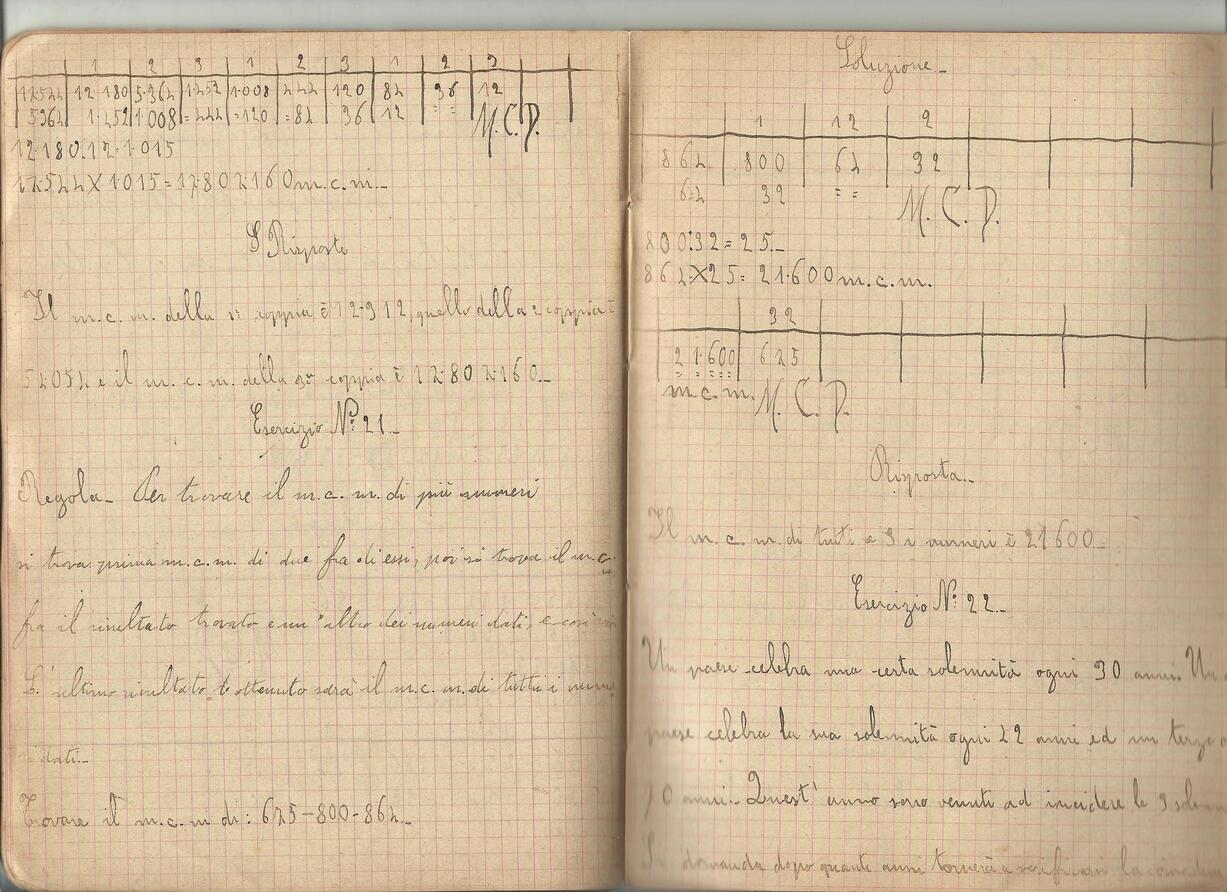 1 2 3 1 2 3 1 2 3
17544 12·180 5·364 1·452 1·008 444 120 84 36 12
5364 1·452 1·008 =444 =120 =84 36 12 = = M.C.D.
12·180:12=1·015
17·544X1·015=17·807·160 m.c.m.-
3 Risposte
Il m.c.m. della 1ª coppia è 12·312, quello della 2 coppia è
54054 e il m.c.m. della 3ª coppia è 17·807·160.-
Esercizio Nº 21.-
Regola- Per trovare il m.c.m. di più numeri
si trova prima m.c.m. di due fra di essi, poi si trova il m.c.
fra il risultato trovato e un altro dei numeri dati, e così
L'ultimo risultato ottenuto sarà il m.c.m. di tutti i nume
ri dati.-
Trovare il m.c.m di: 675-800-864.-
Soluzione-
1 12 2
864 800 64 32
64 32 = = M.C.D.
800:32=25.-
864X25=21·600 m.c.m.
32
21·600 675
= = = = =
m.c.m. M.C.D.
Risposta.-
Il m.c.m. di tutti e 3 i numeri è 21600.-
Esercizio Nº 22.-
Un paese celebra una certa solennità ogni 30 anni. Un
paese celebra la sua solennità ogni 42 anni ed un terzo
70 anni. Quest'anno sono venuti ad incidere le 3 solen
Si domanda dopo quanti anni tornerà a verificarsi la coinciden